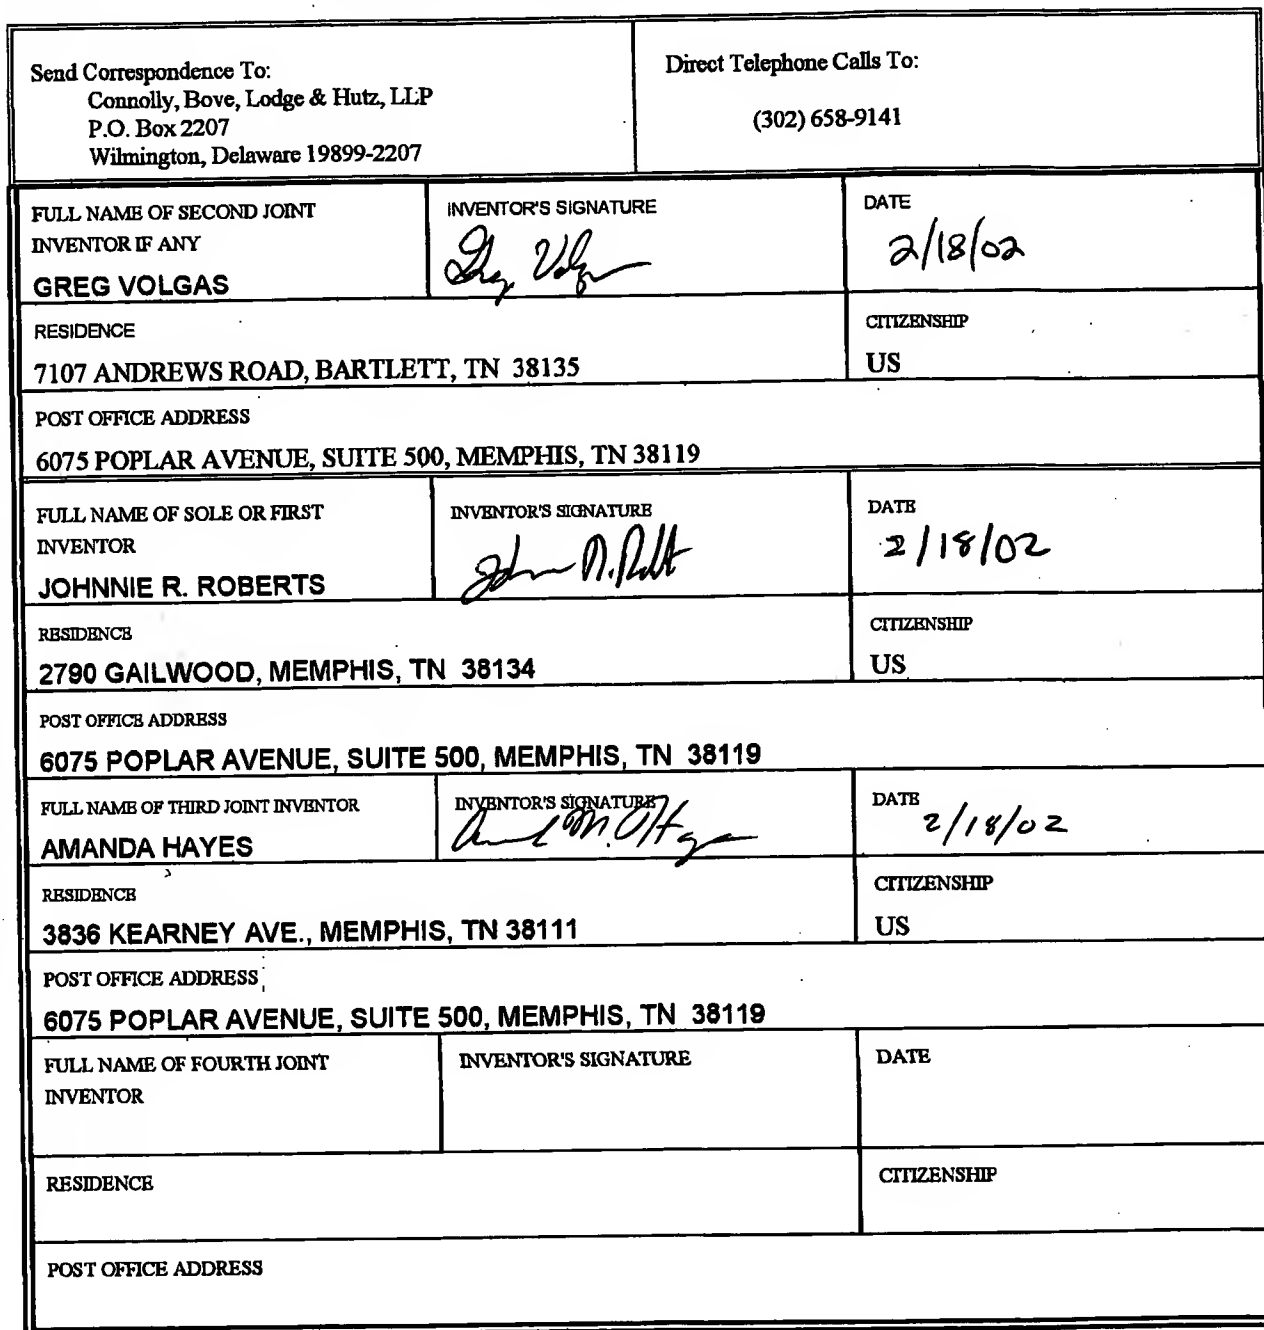 Send Correspondence To:
Connolly, Bove, Lodge & Hutz, LLP
P.O. Box 2207
Wilmington, Delaware 19899-2207
Direct Telephone Calls To:
(302) 658-9141
FULL NAME OF SECOND JOINT
INVENTOR IF ANY
GREG VOLGAS
INVENTOR'S SIGNATURE
Greg Volgas
DATE
2/18/02
RESIDENCE
7107 ANDREWS ROAD, BARTLETT, TN 38135
CITIZENSHIP
US
POST OFFICE ADDRESS
6075 POPLAR AVENUE, SUITE 500, MEMPHIS, TN 38119
FULL NAME OF SOLE OR FIRST
INVENTOR
JOHNNIE R. ROBERTS
INVENTOR'S SIGNATURE
DATE
2/18/02
RESIDENCE
2790 GAILWOOD, MEMPHIS, TN 38134
CITIZENSHIP
US
POST OFFICE ADDRESS
6075 POPLAR AVENUE, SUITE 500, MEMPHIS, TN 38119
FULL NAME OF THIRD JOINT INVENTOR
AMANDA HAYES
INVENTOR'S SIGNATURE
DATE
2/18/02
RESIDENCE
3836 KEARNEY AVE., MEMPHIS, TN 38111
CITIZENSHIP
US
POST OFFICE ADDRESS
6075 POPLAR AVENUE, SUITE 500, MEMPHIS, TN 38119
FULL NAME OF FOURTH JOINT
INVENTOR
INVENTOR'S SIGNATURE
DATE
RESIDENCE
CITIZENSHIP
POST OFFICE ADDRESS